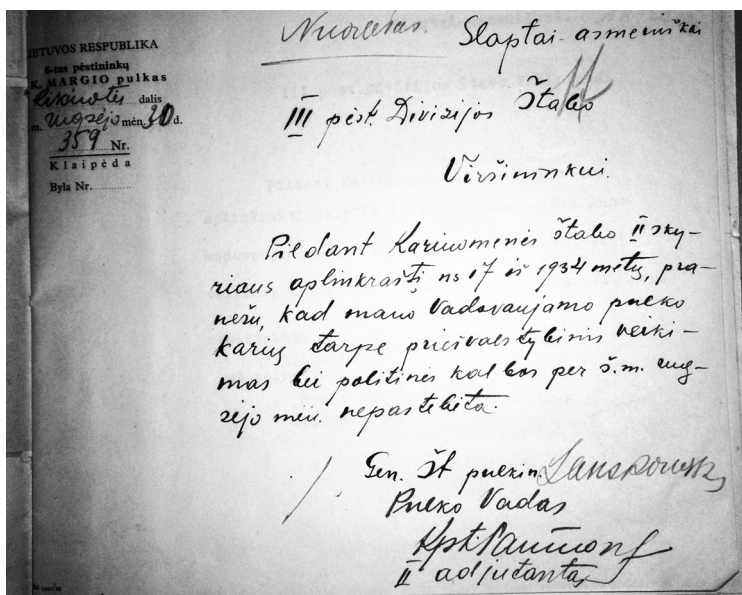 Nuorašas.
Slaptai-asmeniškai
LIETUVOS RESPUBLIKA
6-tas pėstininkų
K. MARGIO pulkas
Rikiuotės dalis
m. rugsėjo mėn. 30 d.
359 Nr.
Klaipėda
Byla Nr.
III pėst. Divizijos Štabo
Viršininkui.
Pildant Kariuomenės štabo II sky-
riaus aplinkraštį No 17 iš 1934 metų, pra-
nešu, kad mano vadovaujamo pulko
karių tarpe priešvalstybinis veiki-
mas bei politinės kalbos per š.m. rug-
sėjo mėn. nepastebėta.
Gen. Št. pulkin.
Pulko Vadas
Kpt.
II adjutantas